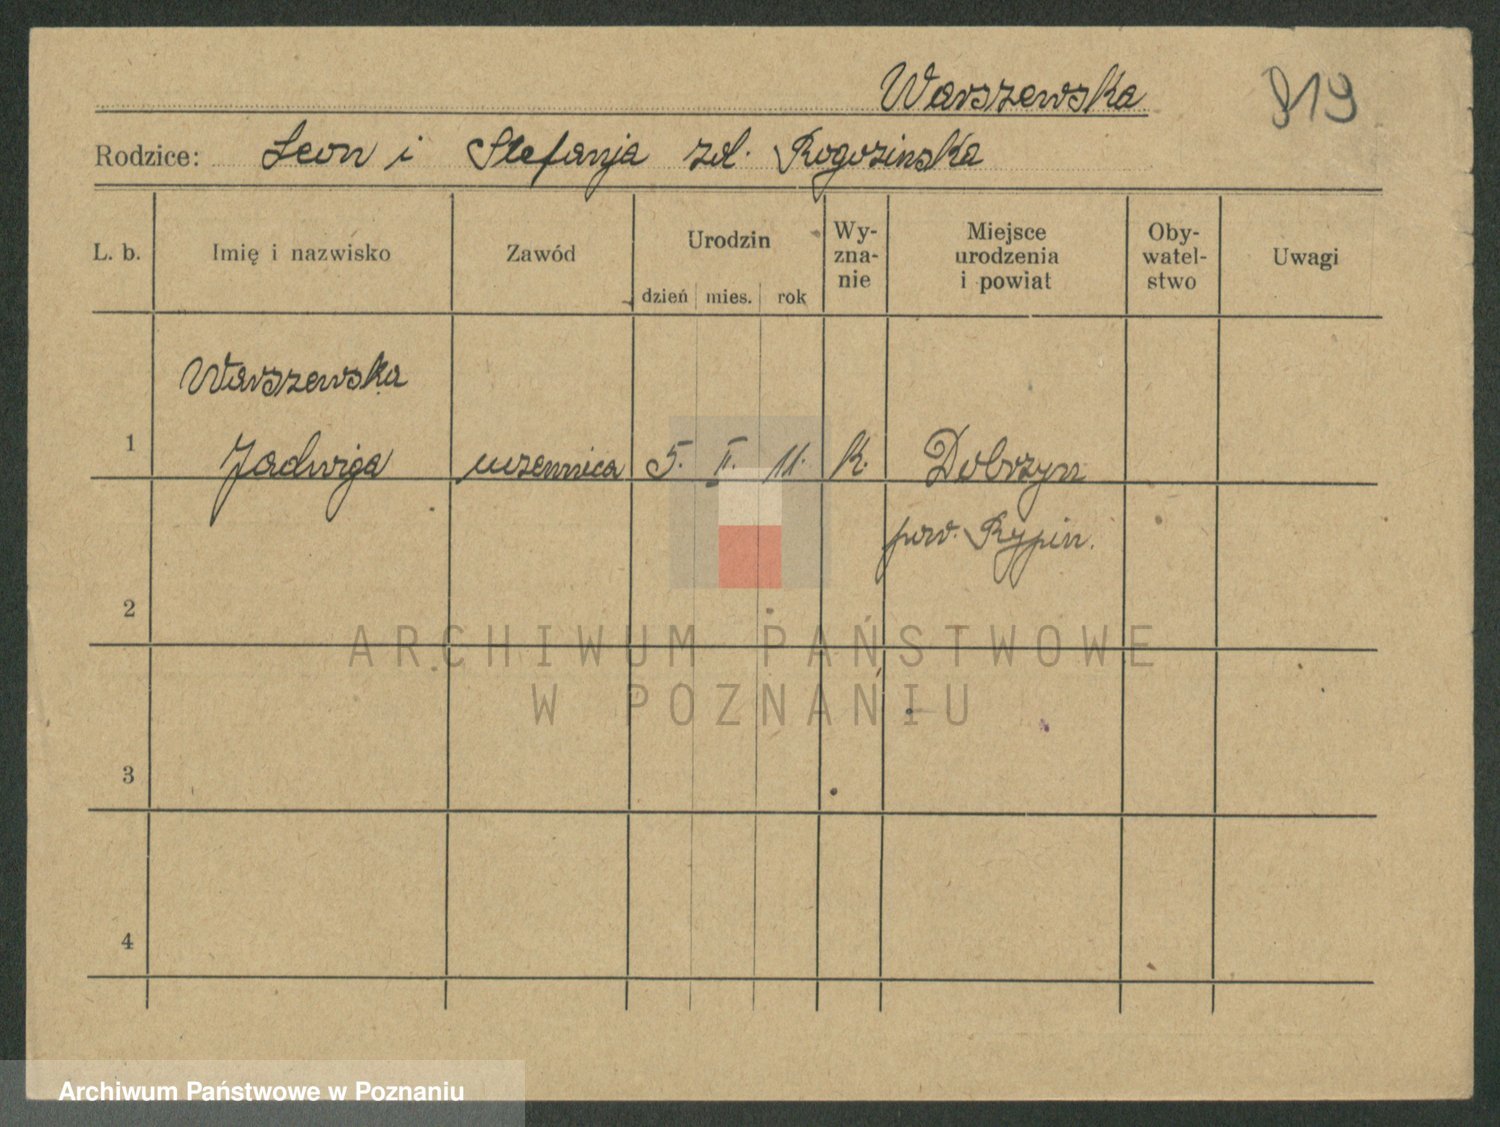 Warszewska 819
Rodzice: Leon i Stefanja zd. Rogozinska
L. b. Imię i nazwisko Zawód Urodzin dzień mies. rok Wy-zna-nie Miejsce urodzenia i powiat Oby-watel-stwo Uwagi
Warszewska
1 Jadwiga uczennica 5. II. 11. K. Dobrzyn
pow. Rypin.
2
ARCHIWUM PAŃSTWOWE
W POZNANIU
3
4
Archiwum Państwowe w Poznaniu